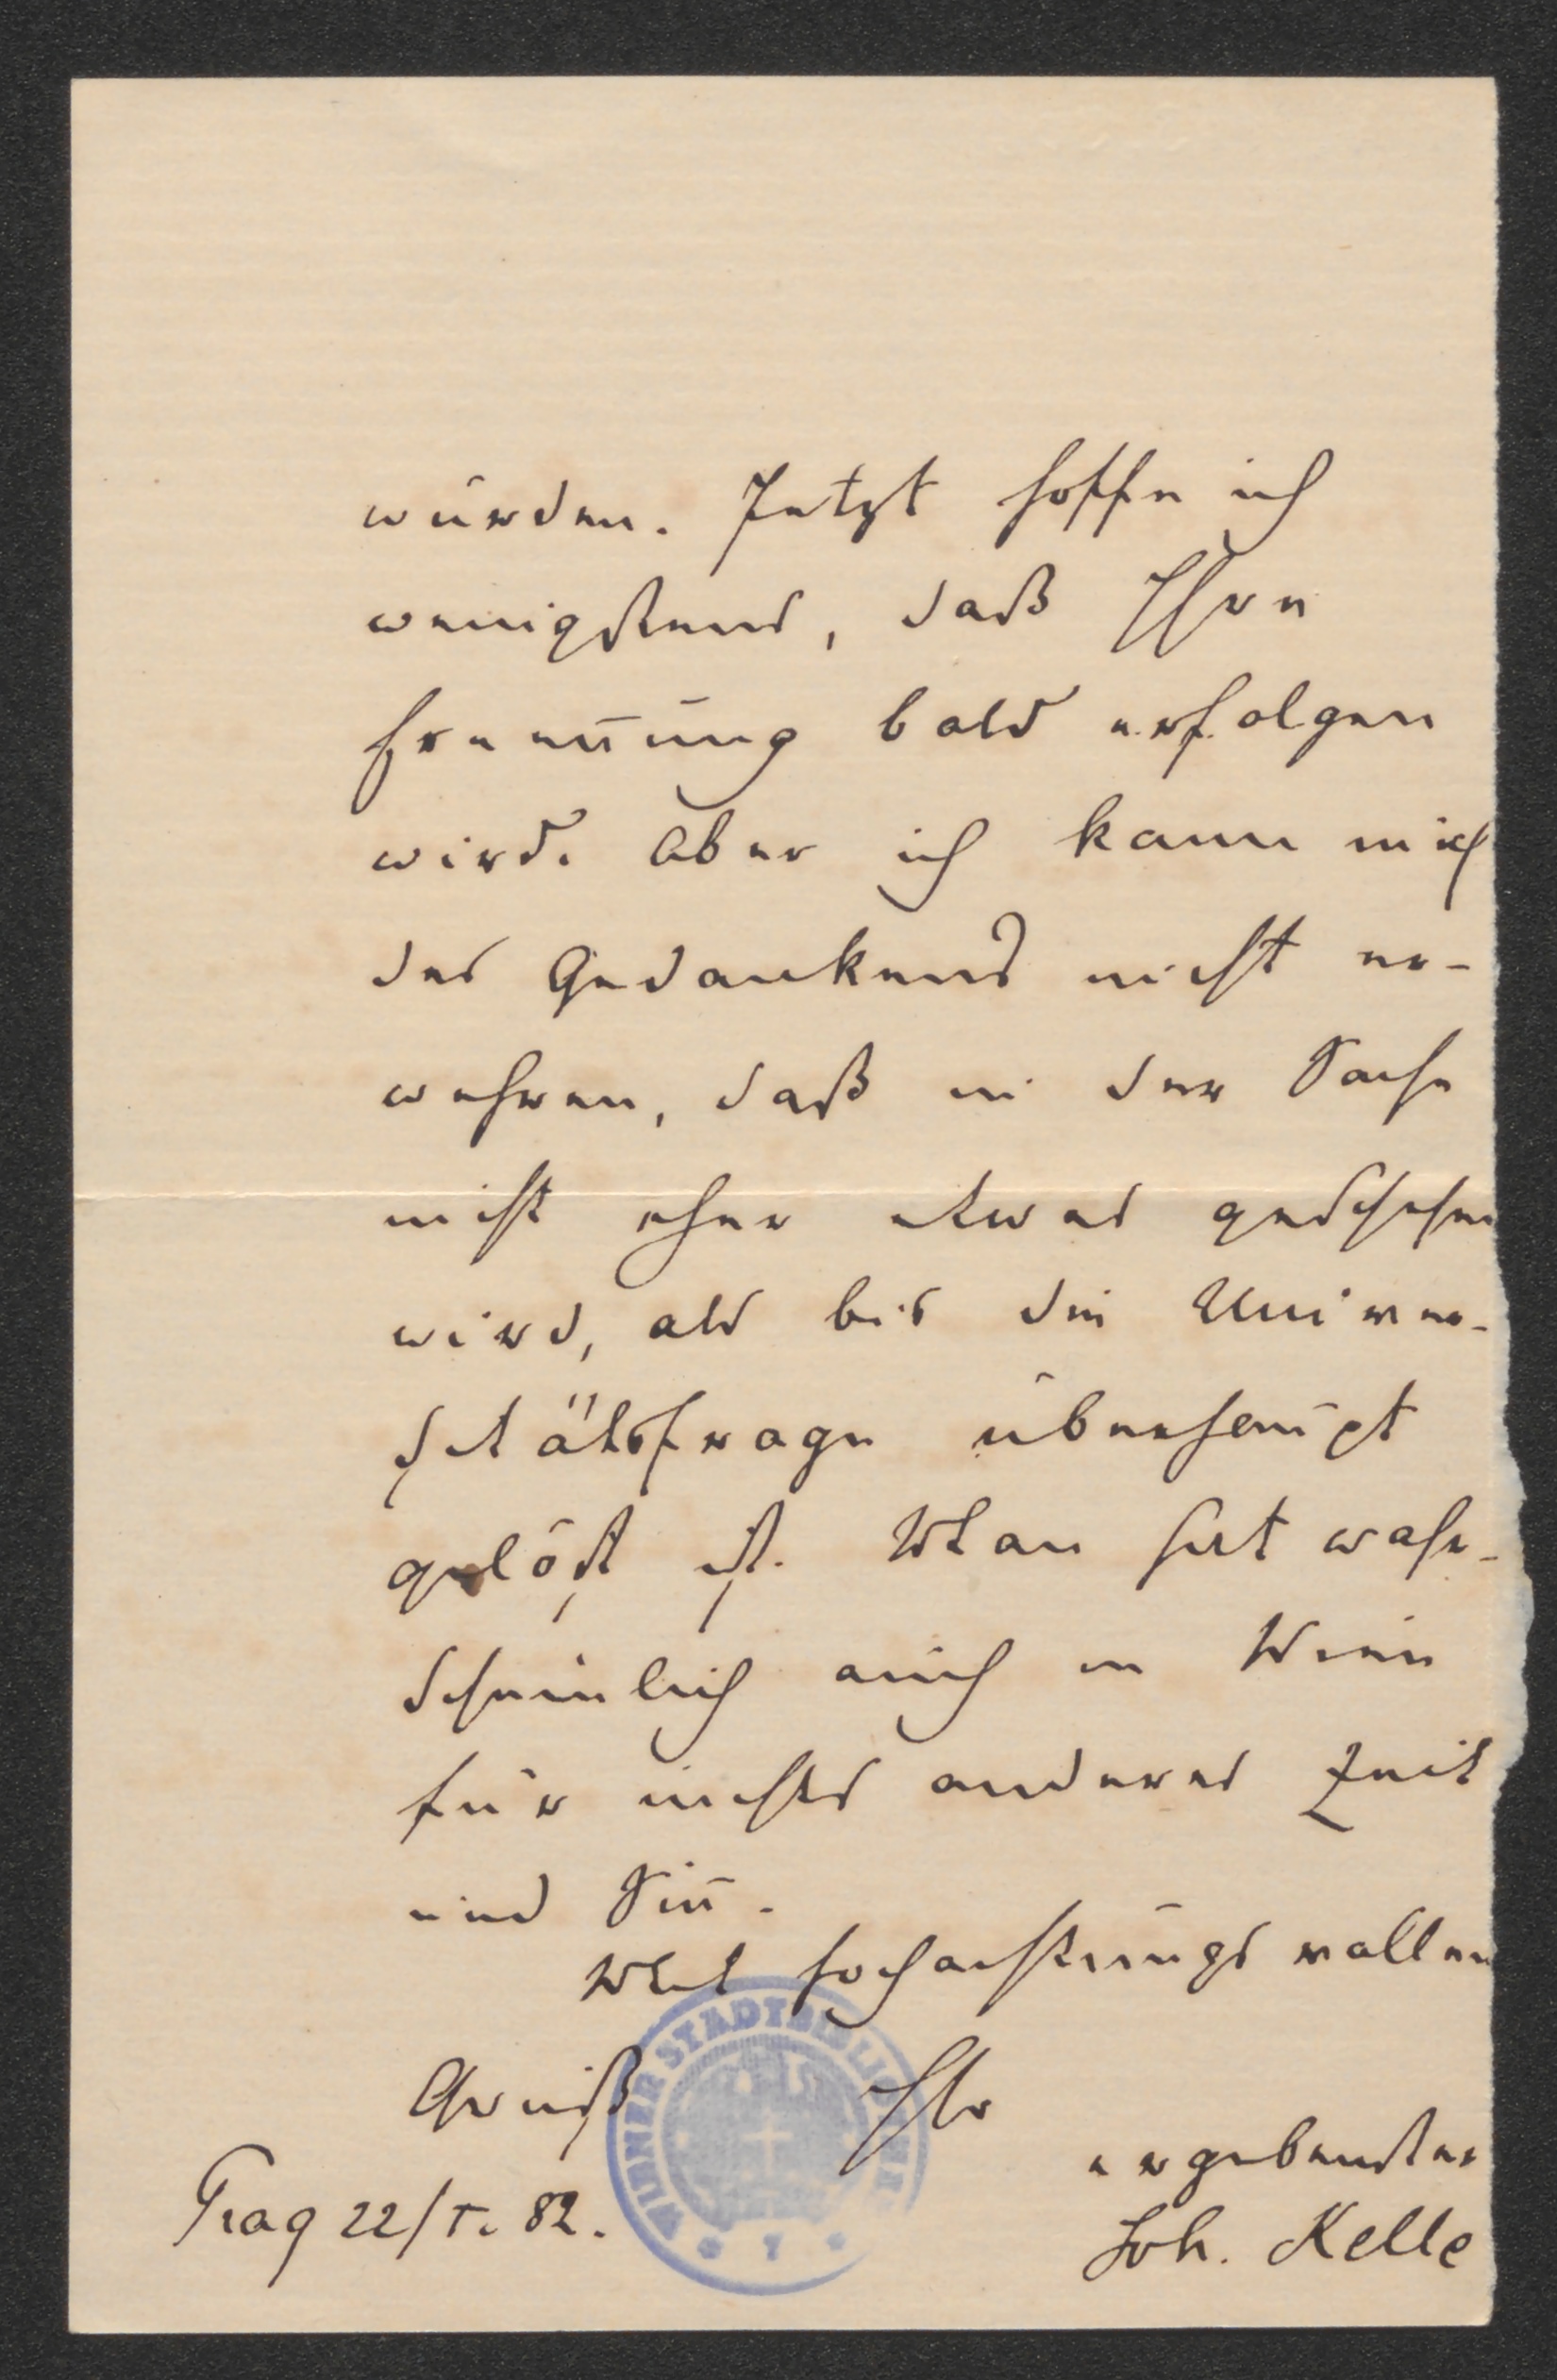 würden. Jetzt hoffe ich
wenigstens, daß Ihre
Ernen̄ung bald erfolgen
wird. Aber ich kann mich
des Gedankens nicht er-
wehren, daß in der Sache
nicht eher etwas geschehen
wird, als bis die Univer-
sitätsfrage überhaupt
gelöst ist. Man hat wahr-
scheinlich auch in Wien
für nichts anderes Zeit
und Sin̄.
Mit hochachtungsvollem
Gruß Ihr
ergebenster
Prag 22/1. 82.
Joh. Kelle
WIENER STADTBIBLIOTHEK
* 7 *